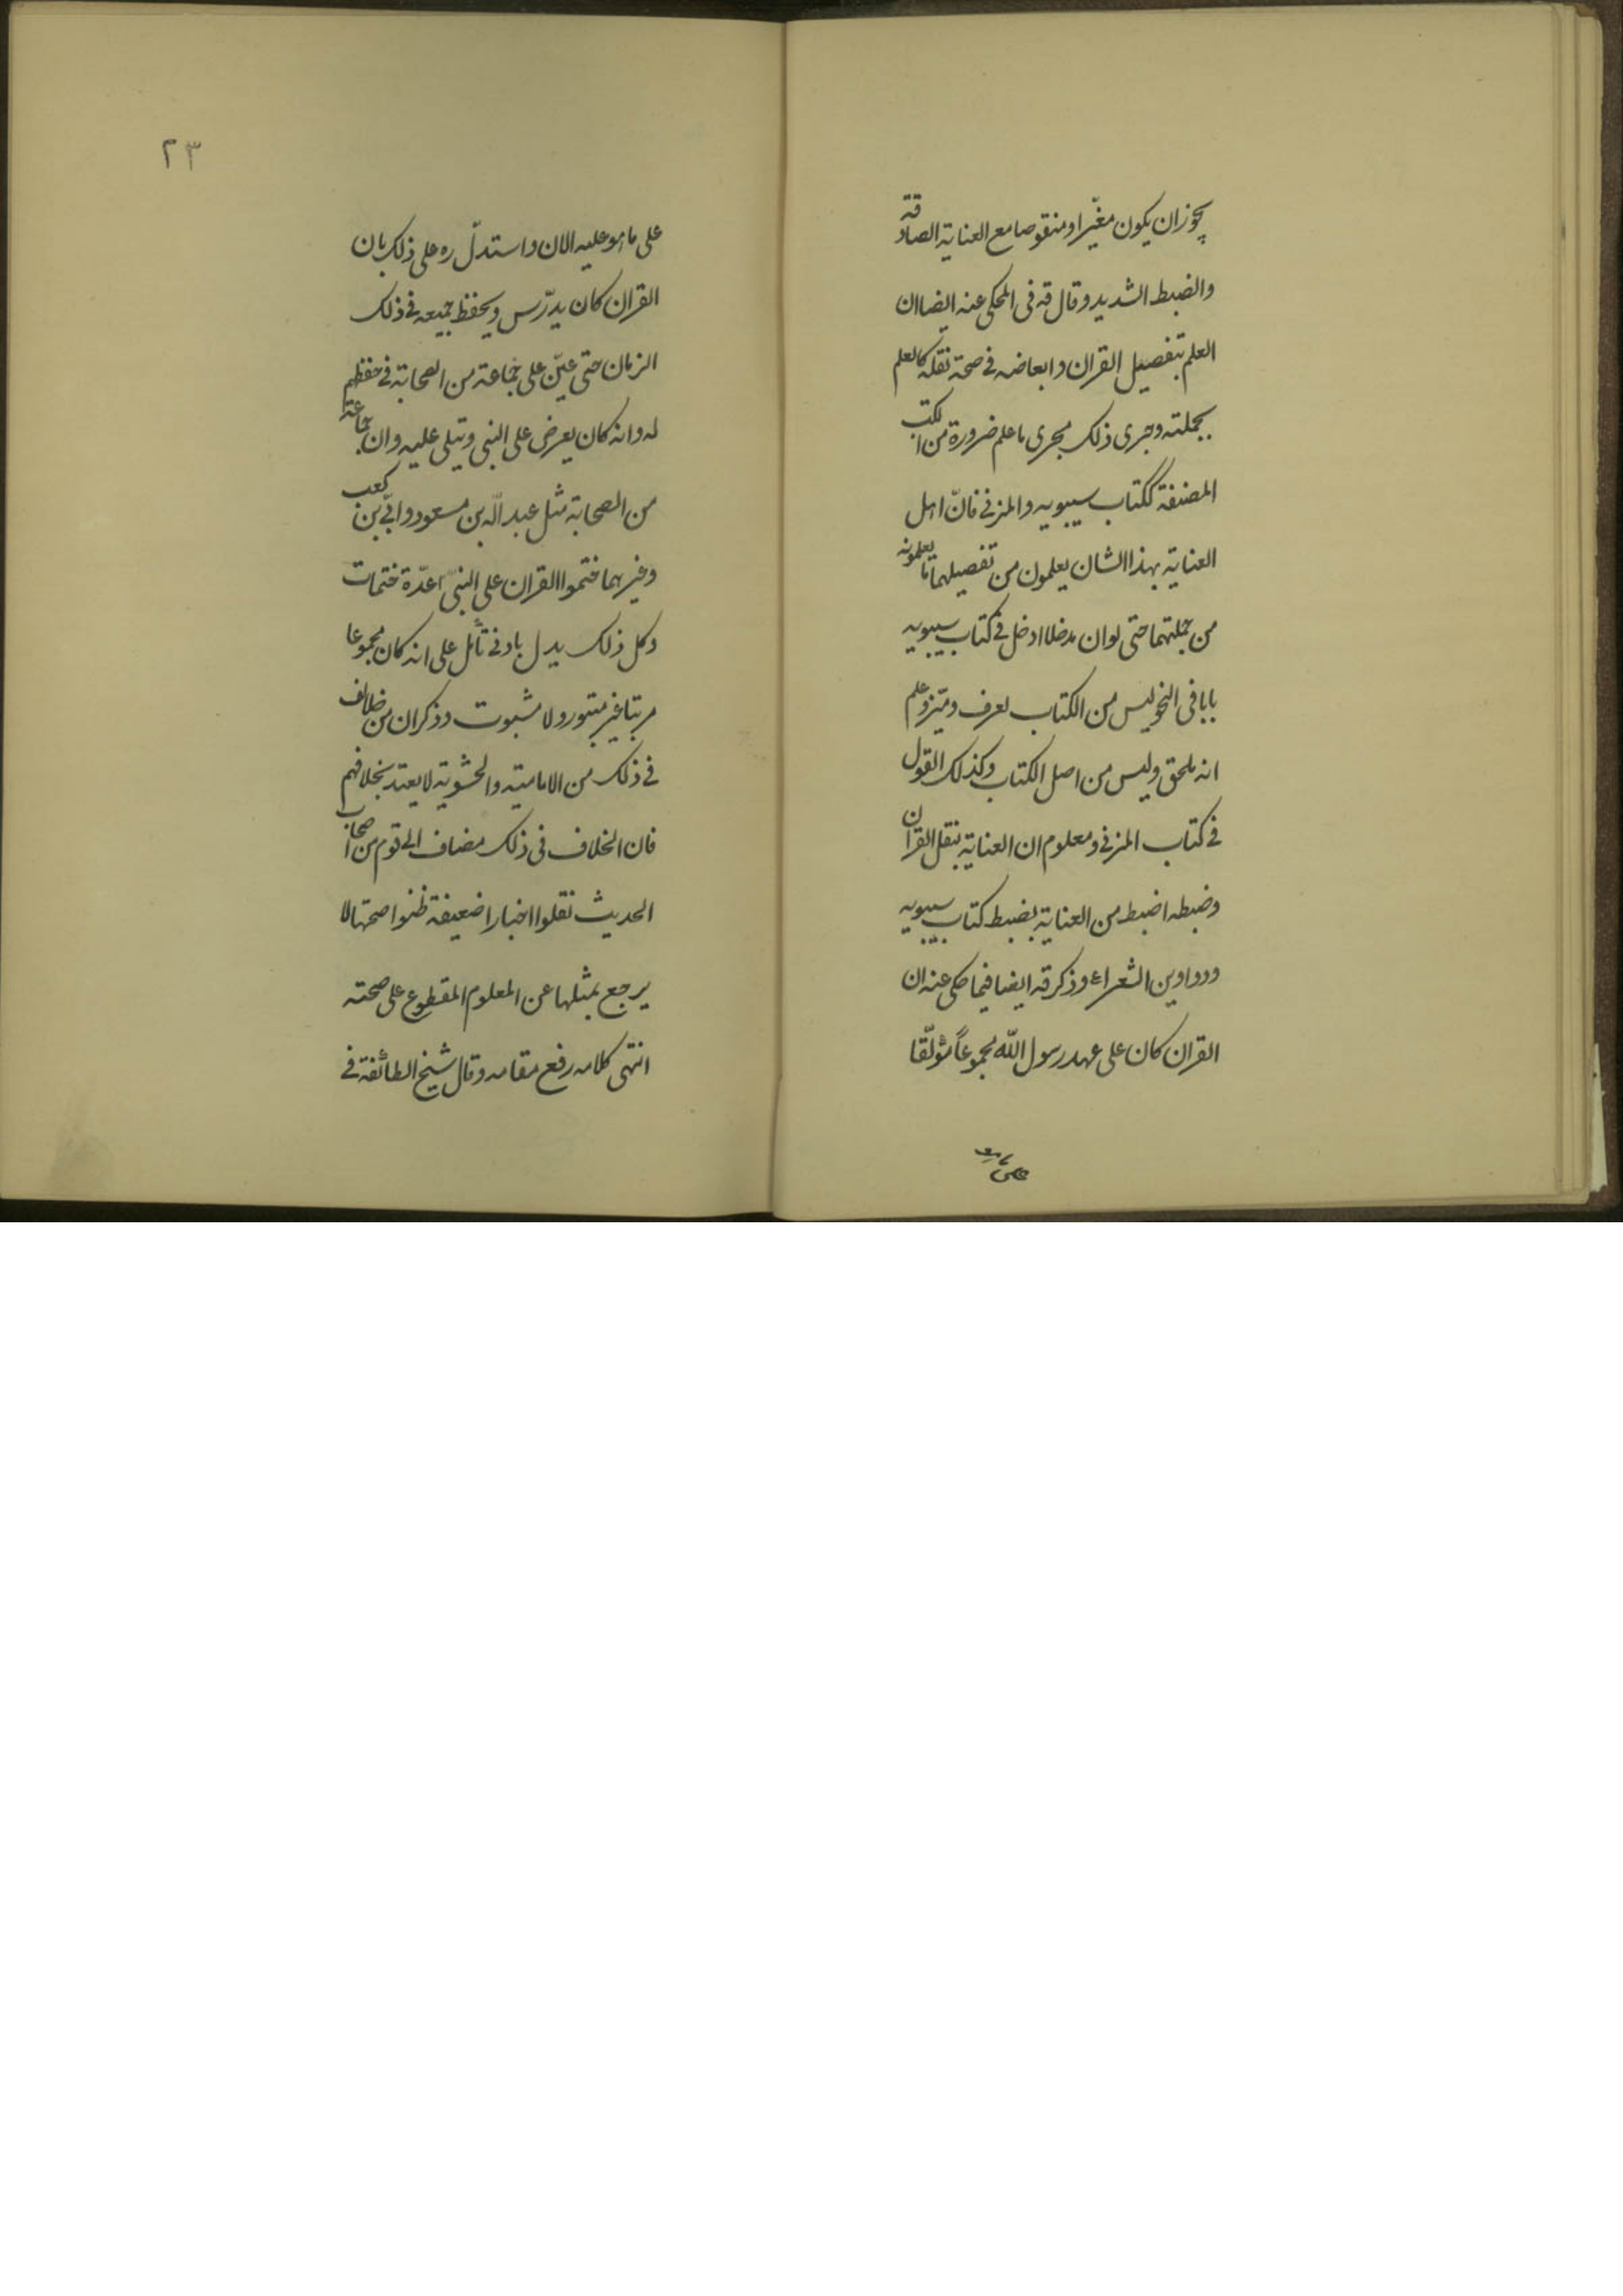 يجوز ان يكون مغيّرا او منقوصا مع العناية الصادقة
والضبط الشديد وقال قه فى المحكى عنه ايضا ان
العلم بتفصيل القران وابعاضه فى صحة نقله كالعلم
بجملته وجرى ذلك مجرى ما علم ضرورة من الكتب
المصنفة ككتاب سيبويه والمزنى فانّ اهل
العناية بهذا الشان يعلمون من تفصيلهما ما يعلمونه
من جملتهما حتى لو ان مدخلا ادخل فى كتاب سيبويه
بابا فى النحو ليس من الكتاب لعرف وميّز وعلم
انه ملحق وليس من اصل الكتاب وكذلك القول
فى كتاب المزنى ومعلوم ان العناية بنقل القران
وضبطه اضبط من العناية بضبط كتاب سيبويه
ودواوين الشعراء وذكر قه ايضا فيما حكى عنه ان
القران كان على عهد رسول اللّه مجموعاً مؤلّفا
على ما هو
٢٣
على ما هو عليه الان واستدلّ ره على ذلك بان
القران كان يدرّس ويحفظ جميعه فى ذلك
الزمان حتى عيّن على جماعة من الصحابة فى حفظهم
له وانه كان يعرض على النبى ويتلى عليه وان جماعة
من الصحابة مثل عبد اللّه بن مسعود وابىّ بن كعب
وغيرهما ختموا القران على النبىّ عدّة ختمات
وكل ذلك يدل بادنى تأمل على انه كان مجموعا
مرتبا غير مبتور ولا مبثوت وذكر ان من خالف
فى ذلك من الامامية والحشوية لا يعتد بخلافهم
فان الخلاف فى ذلك مضاف الى قوم من اصحاب
الحديث نقلوا اخبارا ضعيفة ظنوا صحتها لا
يرجع بمثلها عن المعلوم المقطوع على صحته
انتهى كلامه رفع مقامه وقال شيخ الطائفة فى